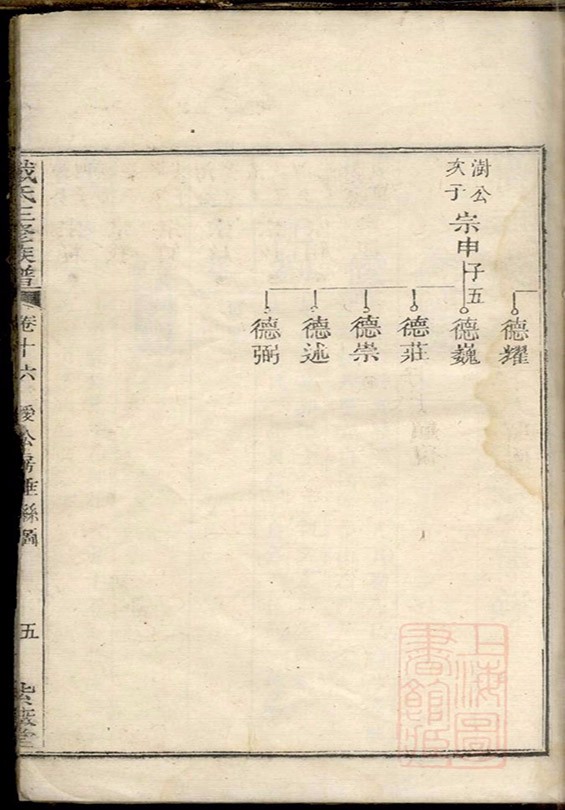 德耀
澍公
次子
宗申
子五
德巍
德莊
德崇
德述
德弼
氏三修族譜
卷十六
公房垂絲圖
五
上海圖
書館藏